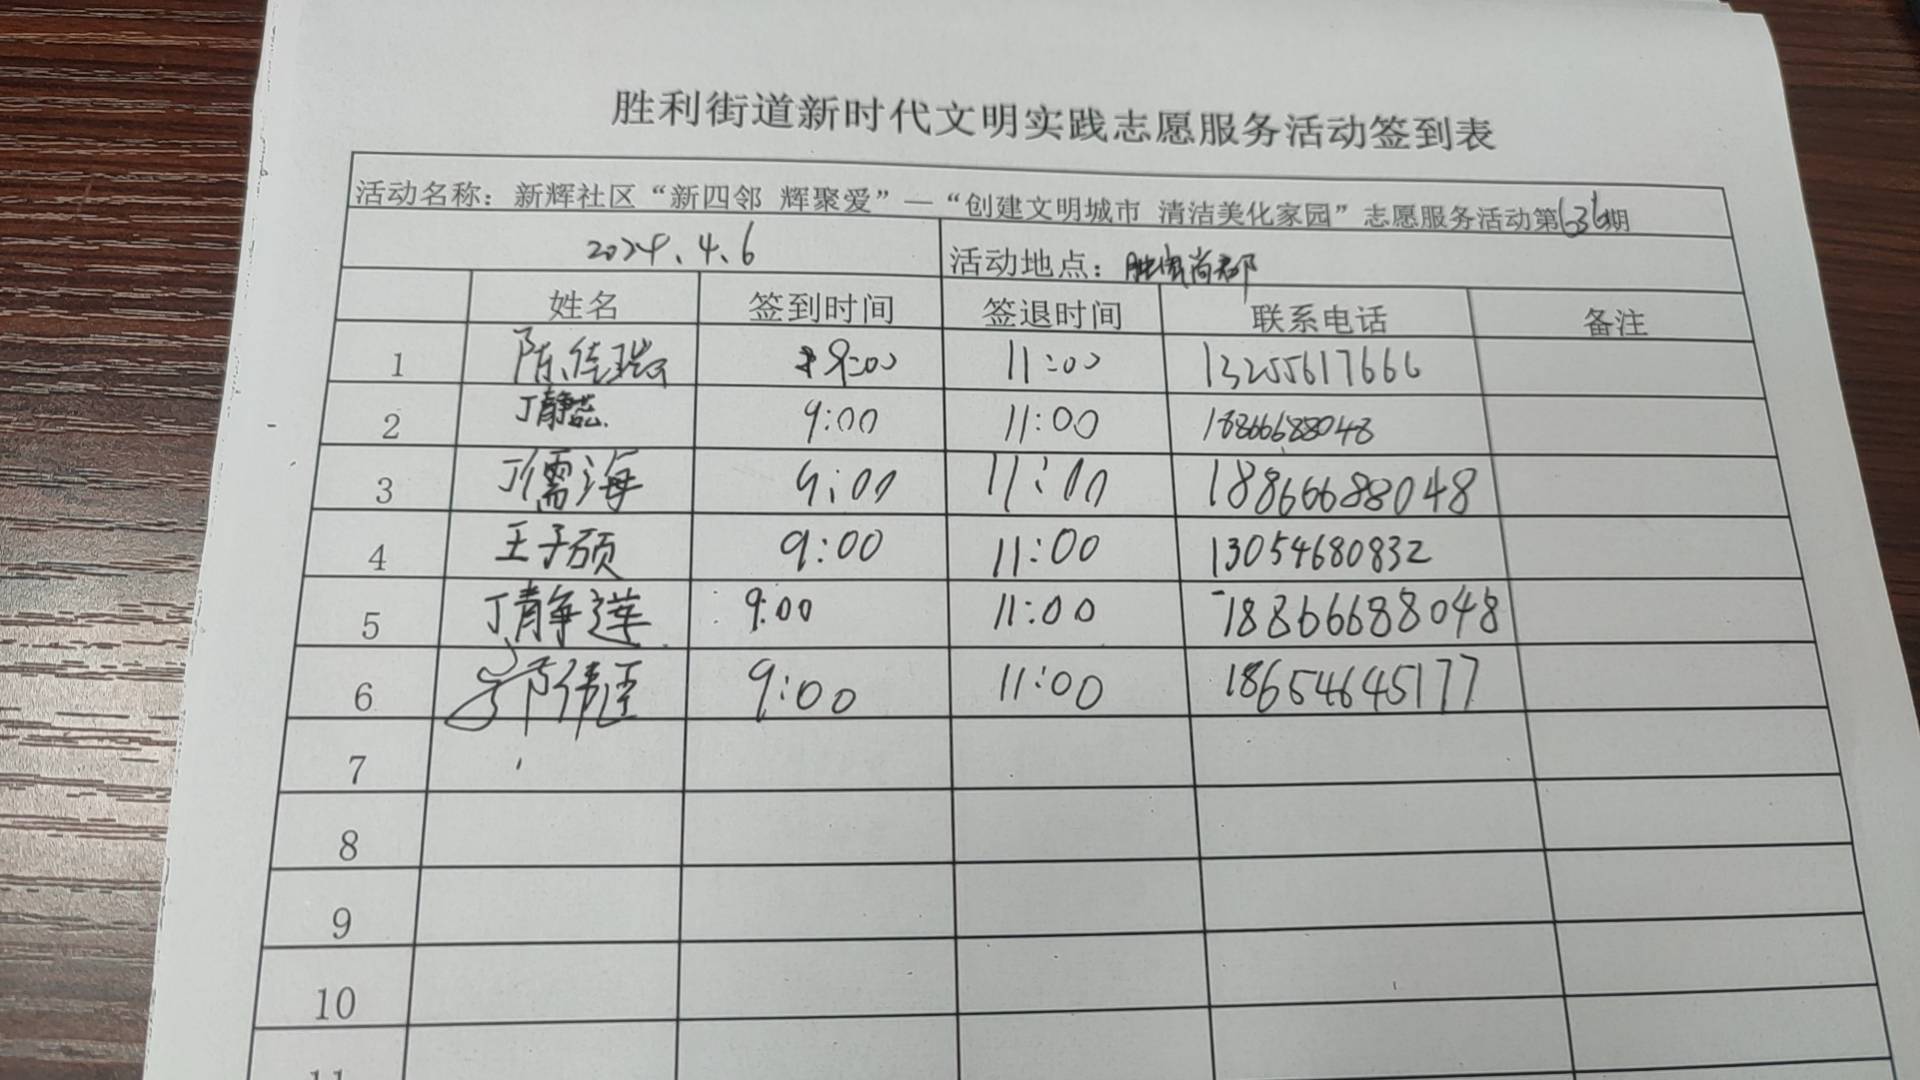 胜利街道新时代文明实践志愿服务活动签到表
活动名称：新辉社区“新四邻 辉聚爱”—“创建文明城市 清洁美化家园”志愿服务活动第636期
2024.4.6 活动地点：尚都
姓名 签到时间 签退时间 联系电话 备注
1 陈佳瑞 9:00 11:00 13255617666
2 丁静蕊 9:00 11:00 18866688048
3 丁儒海 9:00 11:00 18866688048
4 王子硕 9:00 11:00 13054680832
5 丁静莲 9:00 11:00 18866688048
6 9:00 11:00 18654645177
7
8
9
10
11